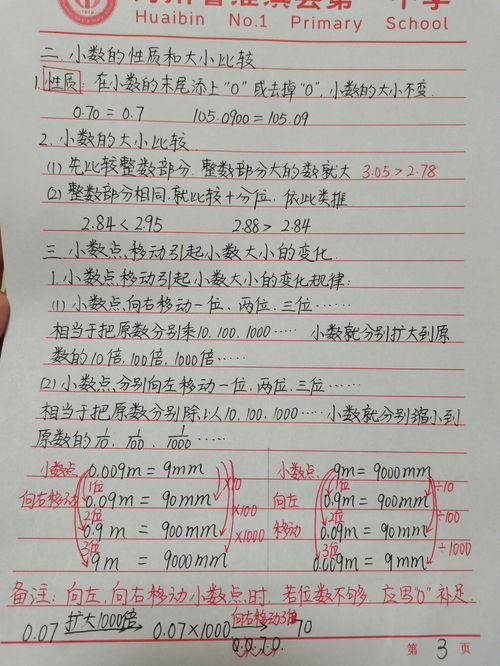 Huaibin No.1 Primary School
二.小数的性质和大小比较
1.性质：在小数的末尾添上"0"或去掉"0",小数的大小不变.
0.70=0.7 105.0900=105.09
2.小数的大小比较
(1)先比较整数部分.整数部分大的数就大 3.05>2.78
(2)整数部分相同,就比较十分位,依此类推
2.84<2.95 2.88>2.84
三.小数点移动引起小数大小的变化
1.小数点移动引起小数大小的变化规律:
(1)小数点向右移动一位,两位,三位……
相当于把原数分别乘10,100,1000…… 小数就分别扩大到原
数的10倍,100倍,1000倍……
(2)小数点分别向左移动一位,两位,三位……
相当于把原数分别除以10,100,1000……小数就分别缩小到
原数的1/10,1/100,1/1000……
小数点 0.009m=9mm 小数点 9m=9000mm
1位 ×10 1位 ÷10
向右移动 0.09m=90mm 向左 0.9m=900mm
2位 ×100 2位 ÷100
0.9m=900mm 移动 0.09m=90mm
3位 ×1000 3位 ÷1000
9m=9000mm 0.009m=9mm
备注:向左,向右移动小数点时,若位数不够,应用"0"补足.
0.07 扩大1000倍 0.07×1000 向右移动3位 70
0.070.
第 3 页